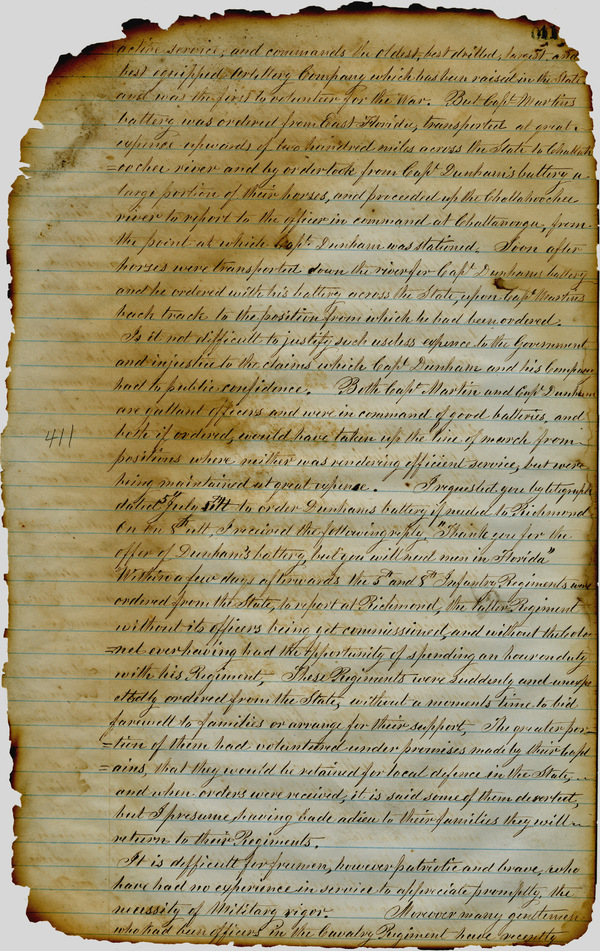 active service, and commands the oldest, best drilled, largest, and
best equipped Artillery Company which has been raised in the State
and was the first to volunteer for the War. But Capt Martins
battery was ordered from East Florida, transported at great
expence upwards of two hundred miles across the State to Chattah
=oochee river and by order took from Capt Dunham's battery a
large portion of their horses, and proceeded up the Chattahoochee
river to report to the officer in command at Chattanooga, from
the point at which Capt Dunham was stationed. Soon after
horses were transported down the river for Capt Dunhams battery
and he ordered with his battery across the State, upon Capt Martins
back track to the position from which he had been ordered.
Is it not difficult to justify such useless expence to the Government
and injustice to the claims which Capt Dunham and his Company
had to public confidence. Both Capt Martin and Capt Dunham
are gallant officers and were in command of good batteries, and
both if ordered, would have taken up the line of march from
411
positions where neither was rendering efficient service, but were
being maintained at great expense. I requested you by telegraph
dated 5th July to order Dunhams battery if needed to Richmond
On the ult, I received the following reply, "Thank you for the
offer of Dunham's battery, but you will need men in Florida"
Within a few days afterwards the 5th and 8th Infantry Regiments were
ordered from the State, to report at Richmond, the latter Regiment
without its officers being yet commissioned, and without the Colo
=nel ever having had the opportunity of spending an hour on duty
with his Regiment, These Regiments were suddenly and unexp
ectedly ordered from the State, without a moments time to bid
farewell to families or arrange for their support, The greater por=
=tion of them had volunteered under promises made by their Capt
=ains, that they would be retained for local defence in the State,
and when orders were received, it is said some of them deserted,
but I presume having bade adieu to their families they will
return to their Regiments.
It is difficult for freemen, however patriotic and brave, who
have had no experience in service to appreciate promptly, the
necessity of Military rigor. Moreover many gentlemen
who had been officers in the Cavalry Regiment have recently